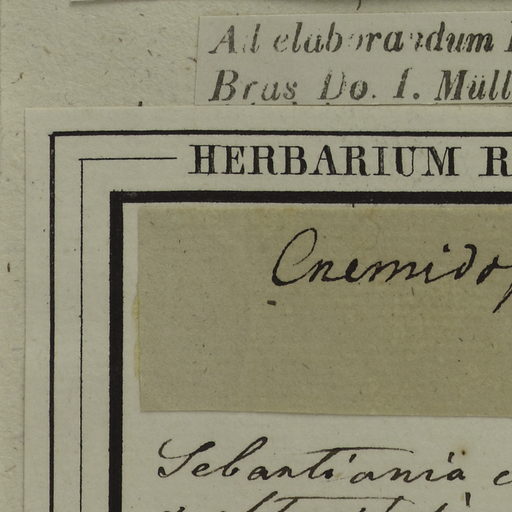 Ad elaborandum
Bras Do. I. Müll
HERBARIUM R
Cnemidop
Sebastiania c